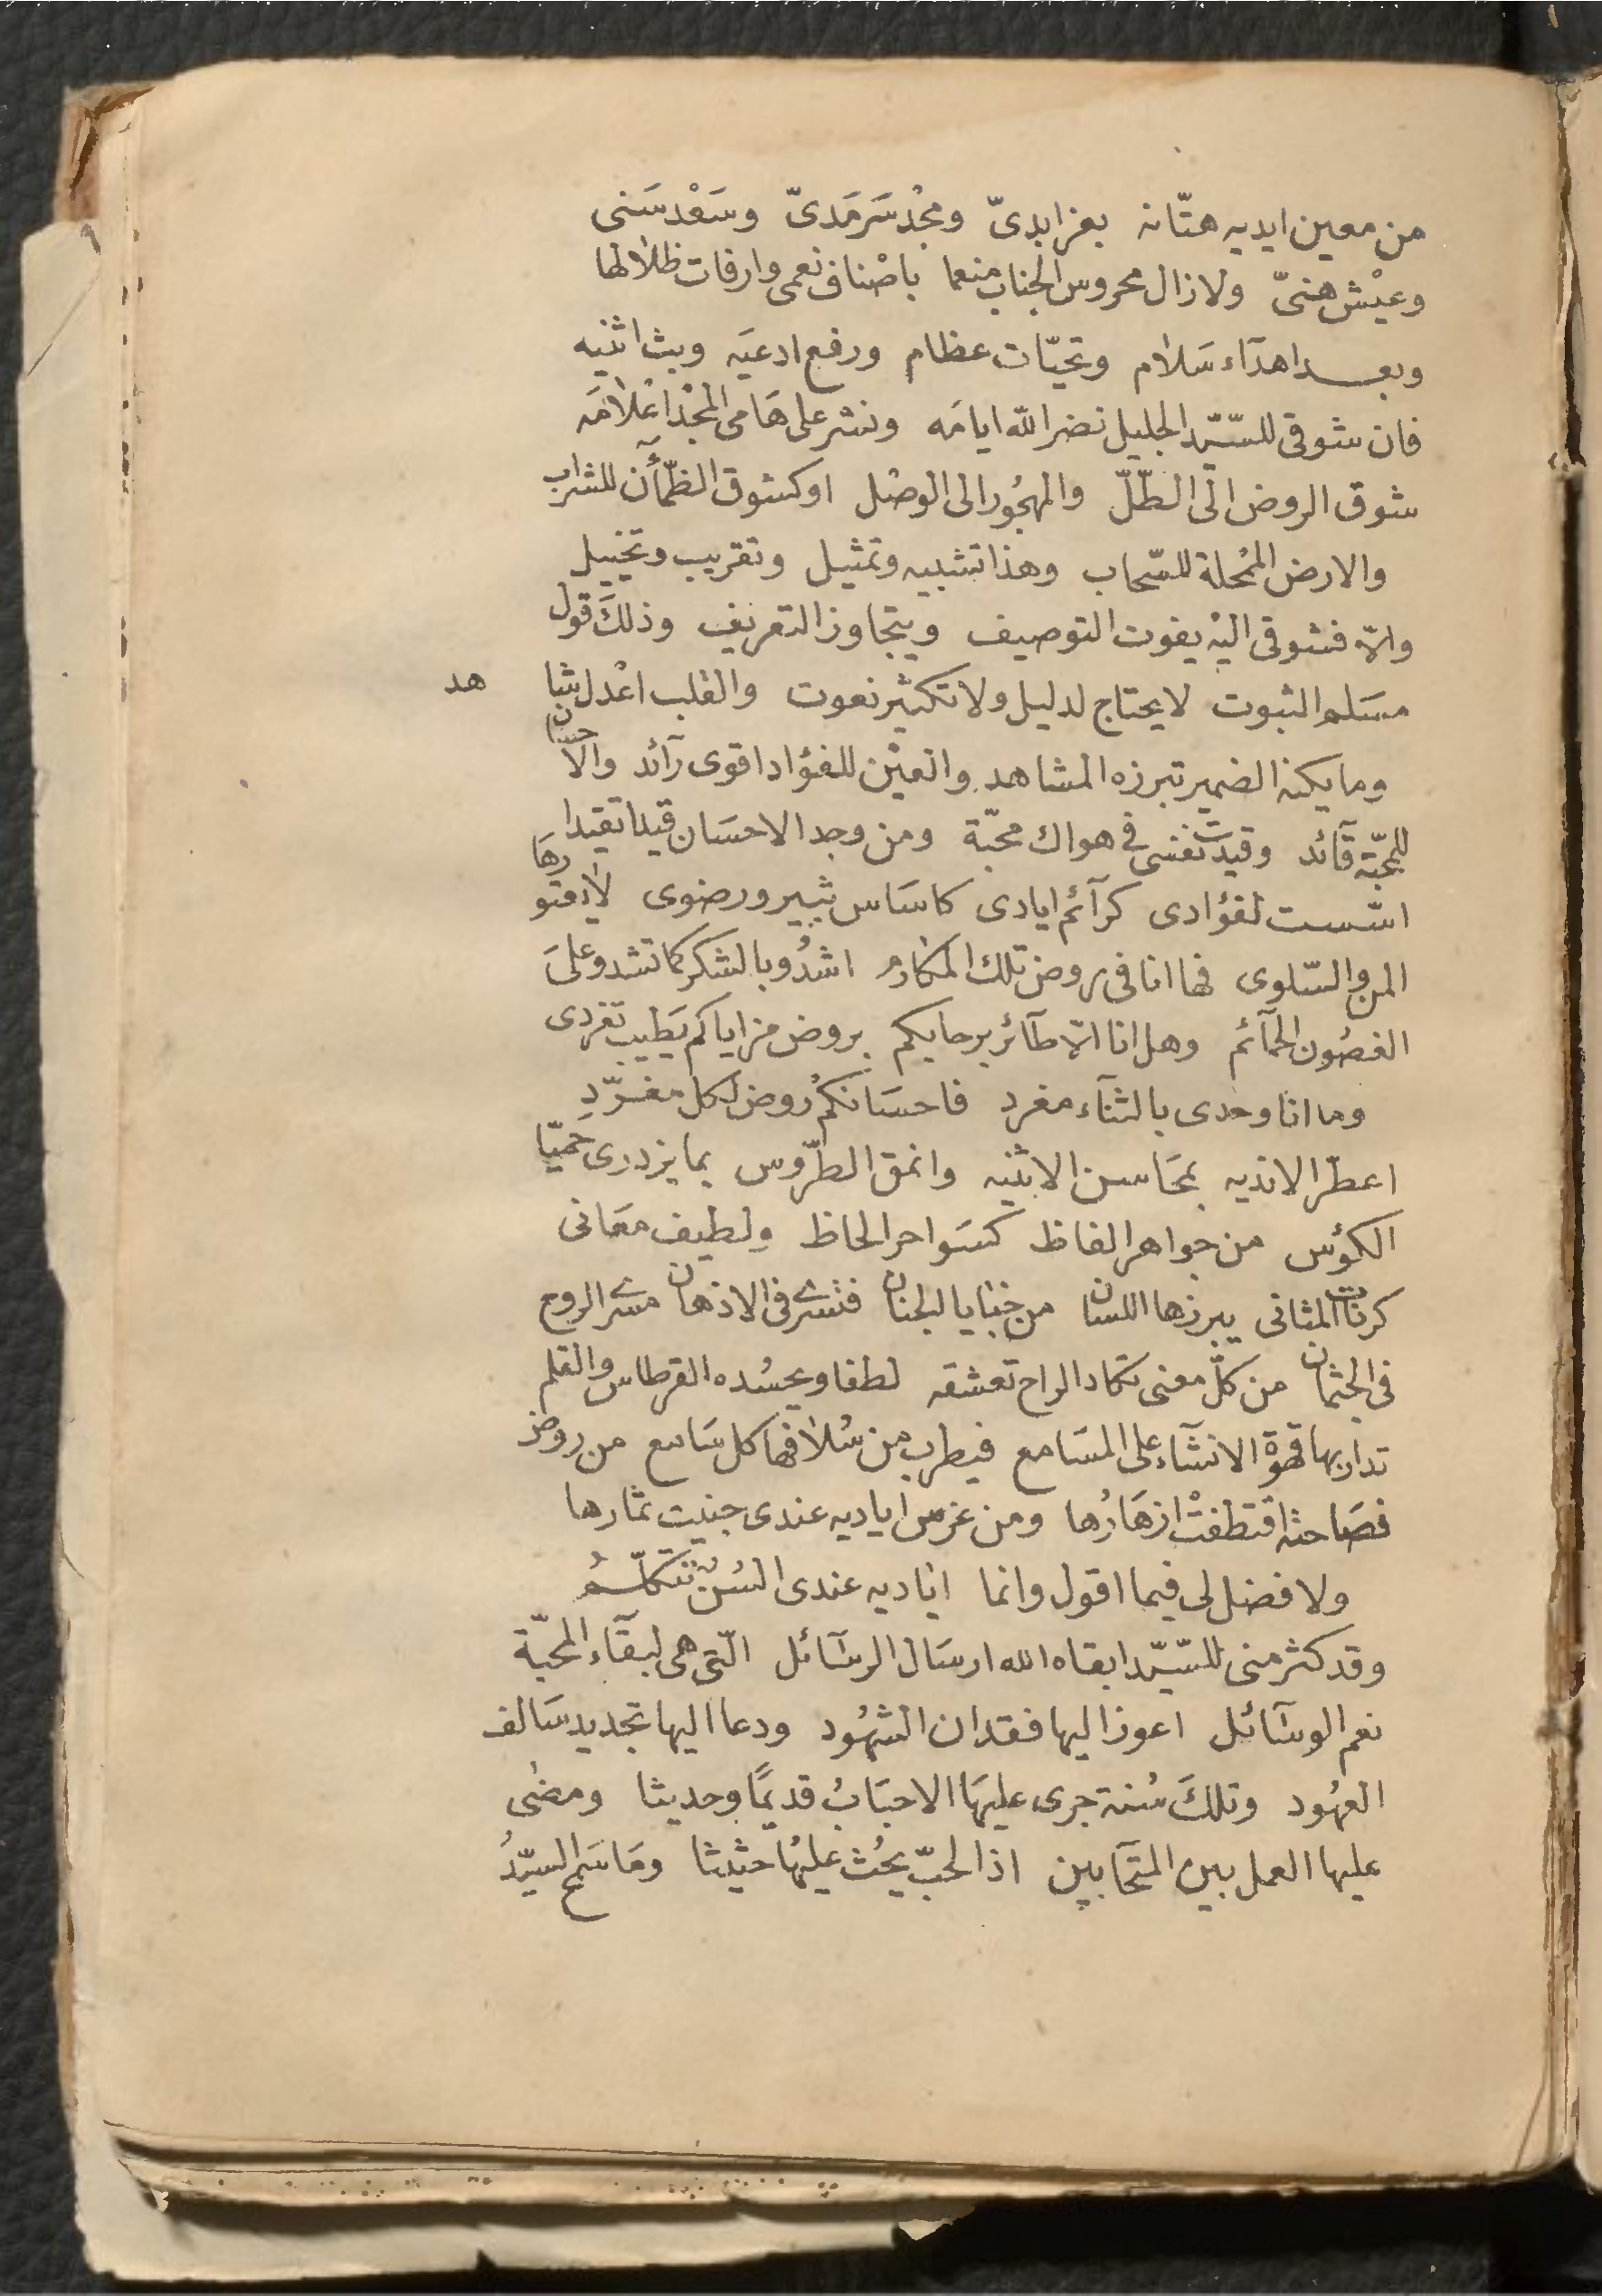 من معين ايديه هتّانه بعز ابدىّ ومجْد سَرمَدىّ وسَعْد سَنى
وعيْش هنىّ ولا زال محروس الجناب منعما باصْناف نعمى وارفات ظلالها
وبعد اهدآء سَلام وتحيّات عظام ورفع ادعيَه وبث اثنيه
فان شوقى للسّيّد الجليل نضر الله ايامَه ونشر على هَامى المجْد اعْلامَه
شوق الروض الى الطّلّ والمهجُور الى الوصْل او كشوق الظّمآن للشراب
والارض الممْحلة للسّحاب وهذا تشبيه وتمثيل وتقريب وتخييل
والاّ فشوقى اليْه يفوت التوصيف ويتجاوز التعريف وذلكَ قول
مسَلم الثبوت لا يحتاج لدليل ولا تكثير نعوت والقلب اعْدل شاهد
وما يكنه الضمير تبرزه المشاهد والعيْن للفؤاد اقوى رآئد والاحسان
للمحبّة قآئد وقيدت نفسى فى هواك محبّة ومن وجد الاحسَان قيدا تقيدا
اسّست لفؤادى كرآئم ايادى كاسَاس ثبير ورضوى لاذقتورهَا
المن والسّلوى فها انا فى روض تلك المكارم اشدُو بالشكر كما تشدو علىَ
الغصُون الحمآئم وهل انا الاّ طآئر برحابكم بروض مزاياكم يَطيب تغردى
وما انا وحدى بالثنآء مغرد فاحسَانكمْ روض لكل مغرّدِ
اعطّر الانديه بمحَاسن الاثنيه وانمق الطّروس بما يزدرى حميّا
الكؤس من جواهر الفاظ كسَواحر الحاظ ولطيف معَانى
كرنّات المثانى يبرزها اللسان من خبَايا الجنان فتسرى فى الاذهان مسرى الروح
فى الجثمان من كلّ معنى تكاد الراح تعشقه لطفا ويحسُده القرطاس والقلم
تدار بها قهوة الانشآء على المسَامع فيطرب من سُلافها كل سَامع من روض
فصَاحته اقتطفتْ ازهَارُها ومن غرس اياديه عندى جنيت ثمارها
ولا فضل لى فيما اقول وانما اياديه عندى السُن تتكلّمُ
وقد كثر منى للسّيّد ابقاه الله ارسَال الرسَآئل الّتى هى لبقآء المحبّة
نعم الوسَآئل اعوز اليها فقدان الشهُود ودعا اليها تجديد سَالف
العهُود وتلكَ سُنة جرى عليهَا الاحبَابُ قديمًا وحديثا ومضٰى
عليها العمل بين المتحآبين اذ الحبّ يحُث عليهَا حثيثا ومَا سَمح السيّدُ